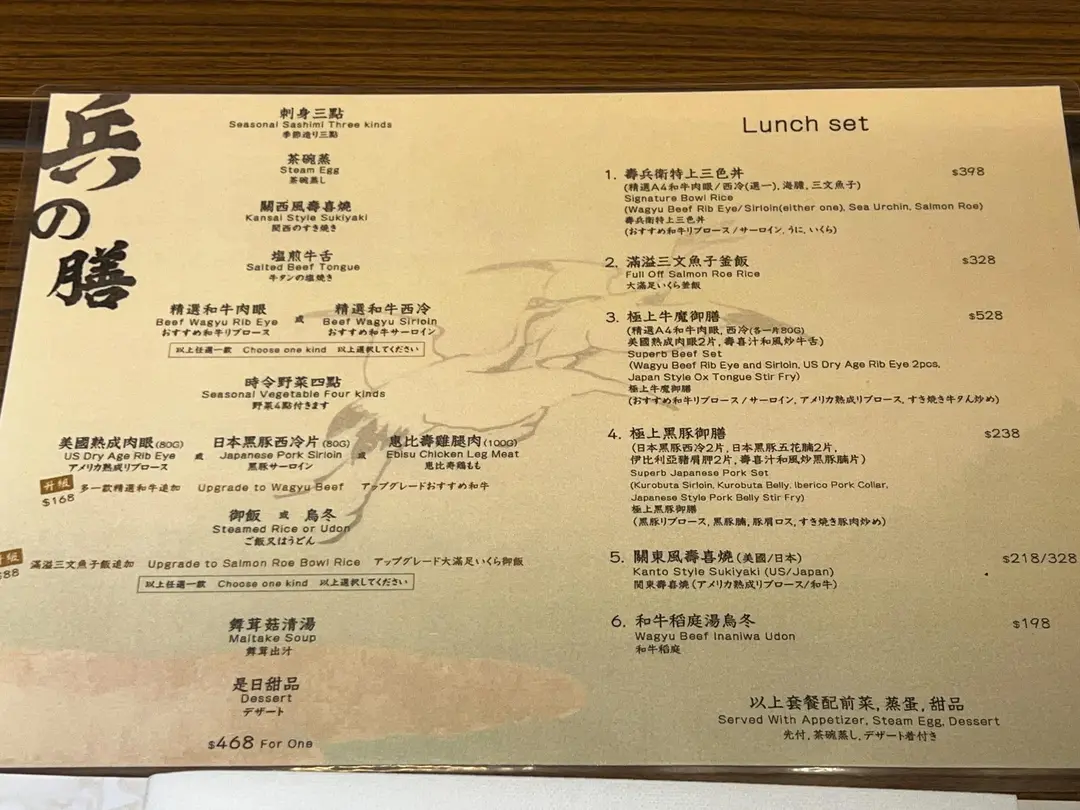 兵の膳
刺身三點
Seasonal Sashimi Three kinds
季節造り三點
茶碗蒸
Steam Egg
茶碗蒸し
關西風壽喜燒
Kansai Style Sukiyaki
関西のすき焼き
塩煎牛舌
Salted Beef Tongue
牛タンの塩焼き
精選和牛肉眼 或 精選和牛西冷
Beef Wagyu Rib Eye Beef Wagyu Sirloin
おすすめ和牛リブロース おすすめ和牛サーロイン
以上任選一款 Choose one kind 以上選択してください
時令野菜四點
Seasonal Vegetable Four kinds
野菜4點付きます
美國熟成肉眼(80G) 日本黑豚西冷片(80G) 惠比壽雞腿肉(100G)
US Dry Age Rib Eye 或 Japanese Pork Sirloin 或 Ebisu Chicken Leg Meat
アメリカ熟成リブロース 黒豚サーロイン 恵比寿鶏もも
升級 $168 多一款精選和牛追加 Upgrade to Wagyu Beef アップグレードおすすめ和牛
御飯 或 烏冬
Steamed Rice or Udon
ご飯又はうどん
級 $88 滿溢三文魚子飯追加 Upgrade to Salmon Roe Bowl Rice アップグレード大滿足いくら御飯
以上任選一款 Choose one kind 以上選択してください
舞茸菇清湯
Maitake Soup
舞茸出汁
是日甜品
Dessert
デザート
$468 For One
Lunch set
1. 壽兵衛特上三色丼 $398
(精選A4和牛肉眼/西冷(選一), 海膽, 三文魚子)
Signature Bowl Rice
(Wagyu Beef Rib Eye/Sirloin(either one), Sea Urchin, Salmon Roe)
壽兵衛特上三色丼
(おすすめ和牛リブロース/サーロイン, うに, いくら)
2. 滿溢三文魚子釜飯 $328
Full Off Salmon Roe Rice
大滿足いくら釜飯
3. 極上牛魔御膳 $528
(精選A4和牛肉眼, 西冷(各一片80G)
美國熟成肉眼2片, 壽喜汁和風炒牛舌)
Superb Beef Set
(Wagyu Beef Rib Eye and Sirloin, US Dry Age Rib Eye 2pcs,
Japan Style Ox Tongue Stir Fry)
極上牛魔御膳
(おすすめ和牛リブロース/サーロイン, アメリカ熟成リブロース, すき焼き牛タん炒め)
4. 極上黑豚御膳 $238
(日本黑豚西冷2片, 日本黑豚五花腩2片,
伊比利亞豬肩胛2片, 壽喜汁和風炒黑豚腩片)
Superb Japanese Pork Set
(Kurobuta Sirloin, Kurobuta Belly, Iberico Pork Collar,
Japanese Style Pork Belly Stir Fry)
極上黒豚御膳
(黒豚リブロース, 黒豚腩, 豚肩ロス, すき焼き豚肉炒め)
5. 關東風壽喜燒(美國/日本) $218/328
Kanto Style Sukiyaki (US/Japan)
関東壽喜燒(アメリカ熟成リブロース/和牛)
6. 和牛稻庭湯烏冬 $198
Wagyu Beef Inaniwa Udon
和牛稻庭
以上套餐配前菜, 蒸蛋, 甜品
Served With Appetizer, Steam Egg, Dessert
先付, 茶碗蒸し, デザート着付き